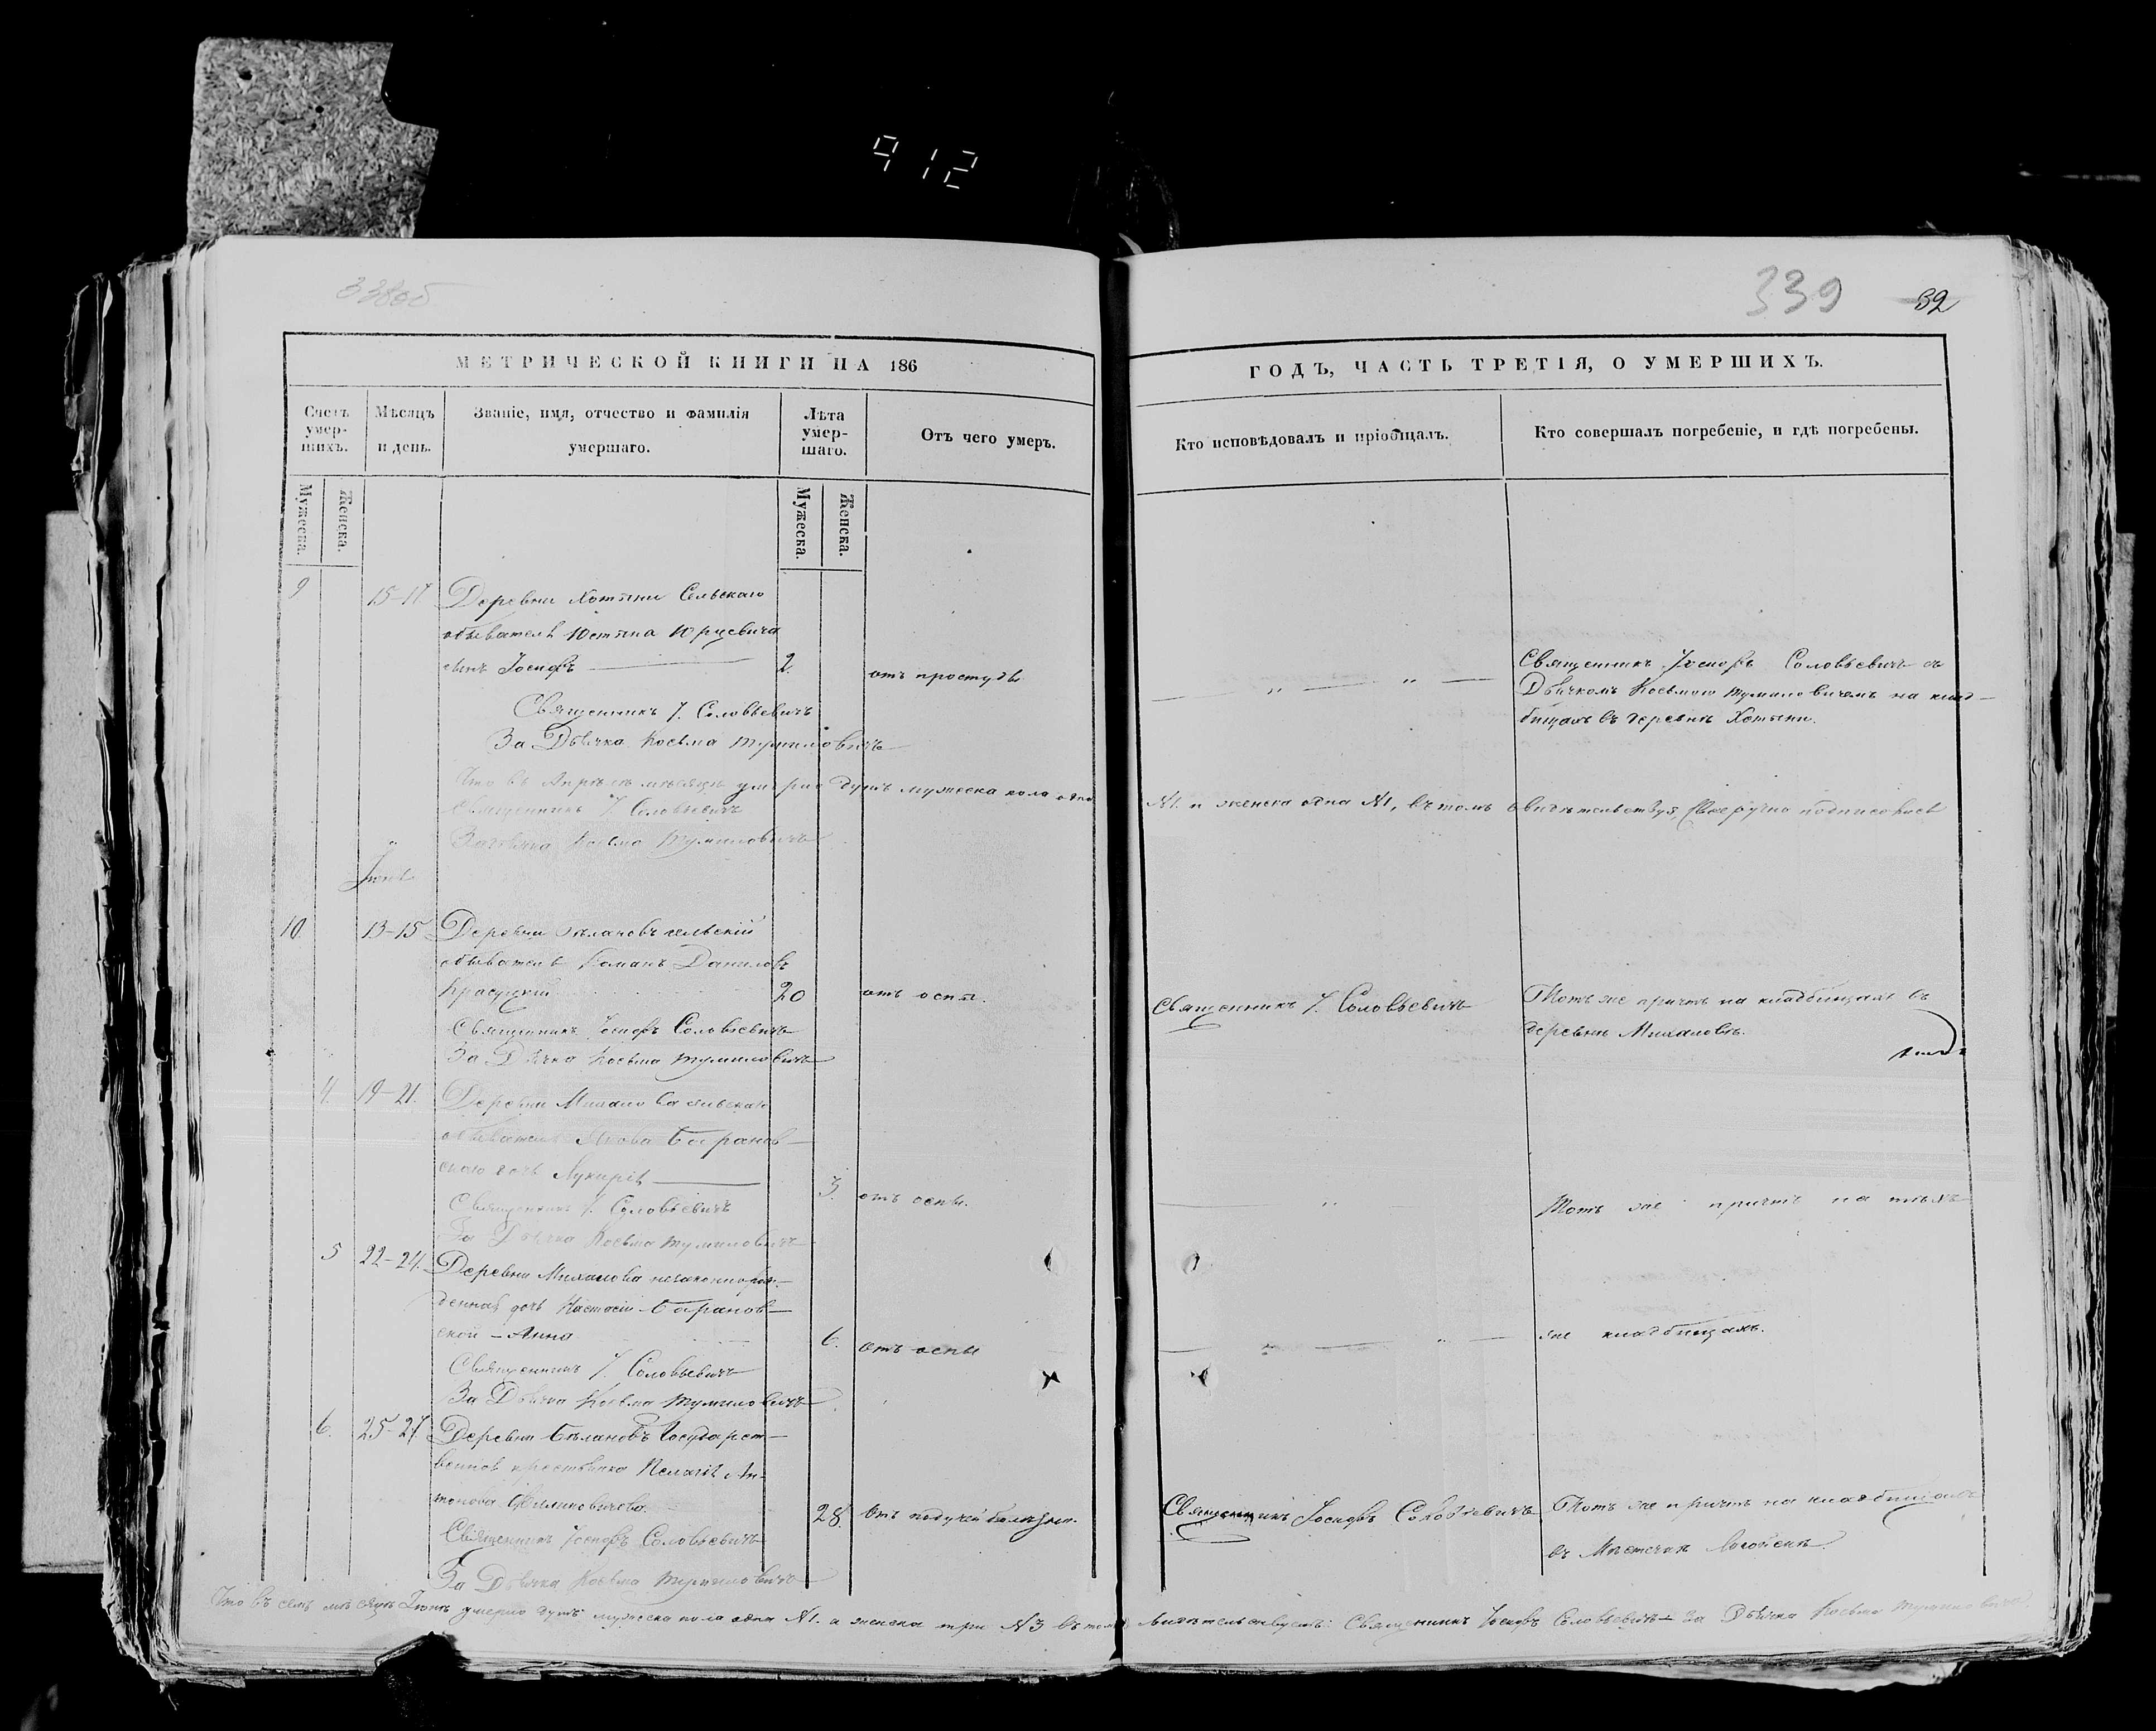 912
338об
339 32
МЕТРИЧЕСКОЙ КНИГИ НА 186
ГОДЪ, ЧАСТЬ ТРЕТІЯ, О УМЕРШИХЪ.
Счетъ умер-шихъ.
Мѣсяцъ и день.
Званіе, имя, отчество и фамилія умершаго.
Лѣта умер-шаго.
Отъ чего умеръ.
Кто исповѣдовалъ и пріобщалъ.
Кто совершалъ погребеніе, и гдѣ погребены.
Мужеска.
Женска.
Мужеска.
Женска.
9 15-17 Деревни Хотыни Сельскаго
обывателя Юстына Юрцевича
сынъ Іосифъ 2. отъ простуды
Священникъ І. Соловьевичъ
За Дьячка Косьма Тумиловичъ
Священникъ Іосифъ Соловьевичъ съ
Дьячкомъ Косьмою Тумиловичемъ на клад-
бищахъ въ деревнѣ Хотыни.
Что въ Апрѣлѣ мѣсяцѣ умерло душъ мужеска пола одна
№1. и женска одна №1, въ томъ свидѣтельствуя, своеручно подписались
Священникъ І. Соловьевичъ
За дьячка Косьма Тумиловичъ
Іюнь
10. 13-15 Деревни сельскій
обыватель Романъ Даниловъ
Красуцкій 20 отъ оспы.
Священникъ І. Соловьевичъ
Тотъ же причтъ на кладбищахъ въ
деревнѣ Милановѣ.
Священникъ Іосифъ Соловьевичъ
За Дьячка Косьма Тумиловичъ
4. 19-21. Деревни сельскаго
обывателя Якова Баранов-
скаго дочь Лукирія 3. отъ оспы.
Тотъ же причтъ на тѣхъ
Священникъ І. Соловьевичъ
За Дьячка Косьма Тумиловичъ
5 22-24. Деревни незаконнорож-
денная дочь Настасіи Баранов-
ской - Анна 6. отъ оспы
же кладбищахъ.
Священникъ І. Соловьевичъ
За Дьячка Косьма Тумиловичъ
6. 25-27 Деревни Бѣлановъ Государст-
венная крестьянка Пелагія Ан-
тонова 28. отъ падучей болѣзни.
Священникъ Іосифъ Соловьевичъ
Тотъ же причтъ на кладбищахъ
въ Мѣстечкѣ Логойскѣ.
Священникъ Іосифъ Соловьевичъ
За Дьячка Косьма Тумиловичъ
Что въ семъ мѣсяцѣ Іюнѣ умерло душъ мужеска пола одна №1. а женска три №3 въ томъ свидѣтельствуемъ: Священникъ Іосифъ Соловьевичъ За Дьячка Косьма Тумиловичъ